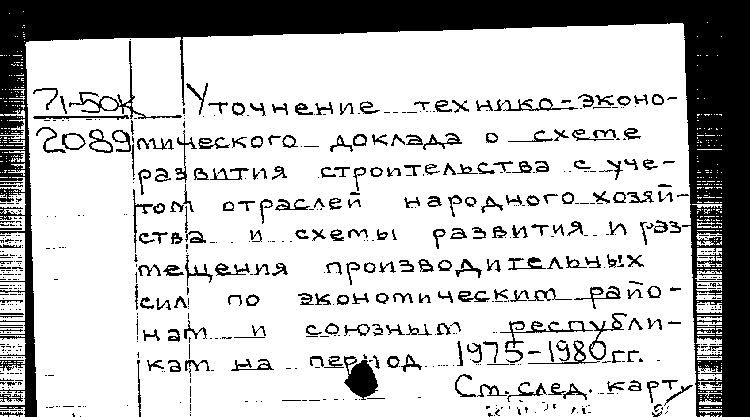 71-50К
2089
Уточнение технико-эконо-
мического доклада о схеме
развития строительства с уче-
том отраслей народного хозяй-
ства и схемы развития и раз-
мещения производительных
сил по экономическим райо-
нам и союзным республи-
кам на период 1975-1980гг.
См. след. карт.